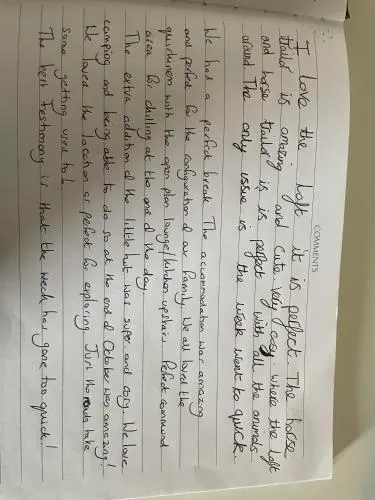 COMMENTS
I love the loft it is perfect. The horse
trailor is amazing and cute very cosy. where the loft
and horse trailor is is perfect with all the animals
around. The only issue is the week went to quick.
We had a perfect break. The accommodation was amazing
and perfect for the configuration of our family. We all loved the
quirkiness with the open plan lounge/kitchen upstairs. Perfect communal
area for chilling at the end of the day.
The extra addition of the little hut was super and cosy. We love
camping and being able to do so at the end of October was amazing!
We loved the location as perfect for exploring. Just the roads take
some getting used to!
The best testimony is that the week has gone too quick!